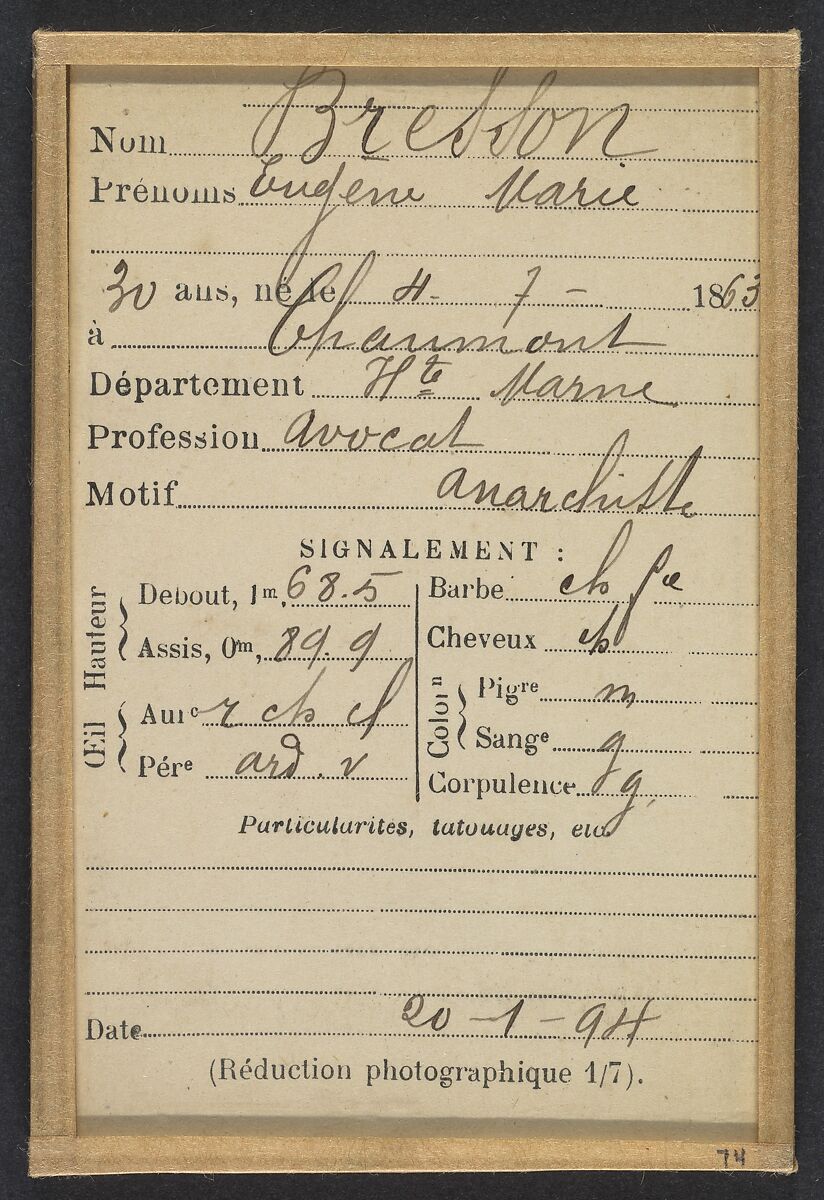 Nom Bresson
Prénoms Eugène Marie
30 ans, né le 4 - 7 - 1863
à Chaumont
Département Hte Marne
Profession avocat
Motif anarchiste
SIGNALEMENT :
Hauteur
Debout, 1m, 68.5
Assis, 0m, 89.9
Œil
Aurc r ch cl
Pére ard. v
Barbe ch fce
Cheveux ch
Colorn
Pigre m
Sange g
Corpulence g
Particularités, tatouages, etc.
Date 20 - 1 - 94
(Réduction photographique 1/7).
74